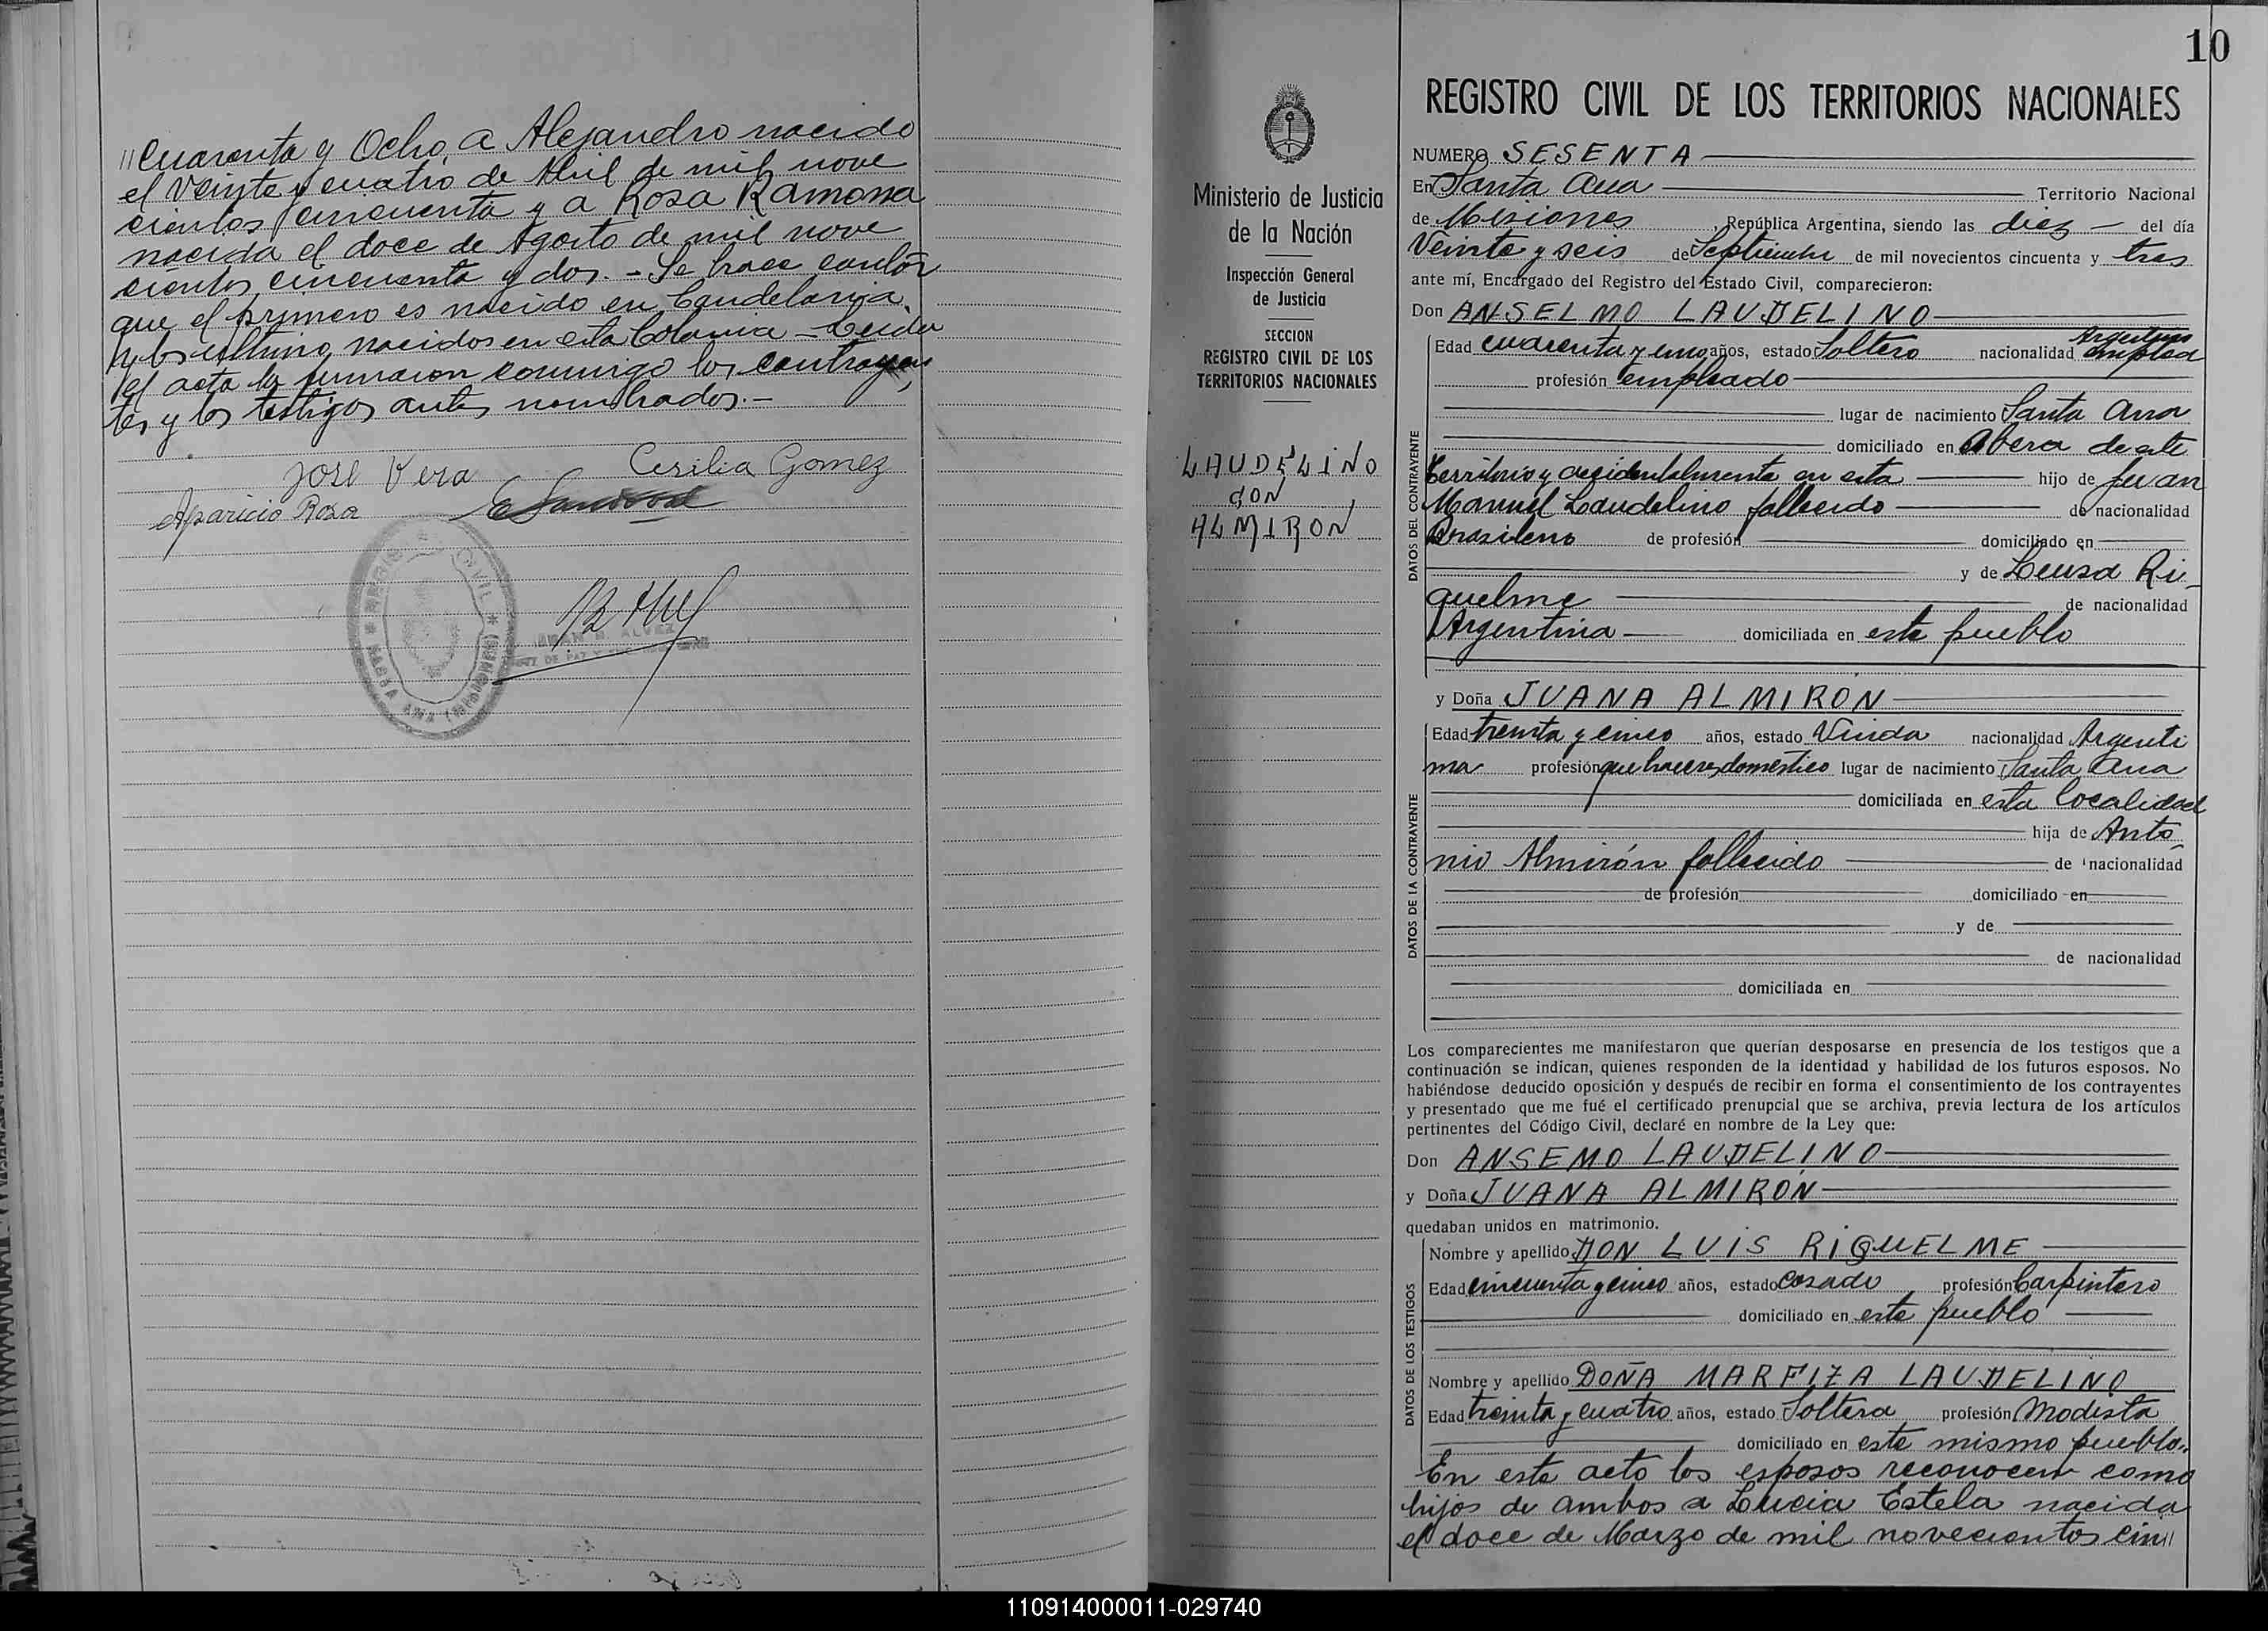 "Cuarenta y Ocho, a Alejandro nacido
el veinte y cuatro de Abril de mil nove
cientos cincuenta y a Rosa Ramona
nacida el doce de Agosto de mil nove
cientos cincuenta y dos.- Se hace
que el primero es nacido en Candelaria
y los nacidos en esta Colonia - Leida
el acta la firmaron conmigo los contrayen
tes y los testigos antes nombrados.-
José Vera
Cesilia Gomez
Aparicio Rosa
REGISTRO CIVIL
SANTA ANA (MISIONES)
10
Ministerio de Justicia
de la Nación
Inspección General
de Justicia
SECCION
REGISTRO CIVIL DE LOS
TERRITORIOS NACIONALES
LAUDELINO
CON
ALMIRON
REGISTRO CIVIL DE LOS TERRITORIOS NACIONALES
NUMERO SESENTA
En Santa Ana Territorio Nacional
de Misiones República Argentina, siendo las diez del día
Veinte y seis de Septiembre de mil novecientos cincuenta y tres
ante mí, Encargado del Registro del Estado Civil, comparecieron:
Don ANSELMO LAUDELINO
Argentino
Edad cuarenta y uno años, estado Soltero nacionalidad emplea
profesión empleado
lugar de nacimiento Santa Ana
domiciliado en Obera de este
territorio y accidentalmente en esta hijo de Juan
Manuel Laudelino fallecido de nacionalidad
Brasilero de profesión domiciliado en
y de Leusa Ri-
quelme de nacionalidad
Argentina domiciliada en este pueblo
y Doña JUANA ALMIRON
Edad treinta y cinco años, estado Viuda nacionalidad Argenti
na profesión quehaceres doméstico lugar de nacimiento Santa Ana
domiciliada en esta localidad
hija de Anto
nio Almirón fallecido de nacionalidad
de profesión domiciliado en
y de
de nacionalidad
domiciliada en
DATOS DEL CONTRAYENTE
DATOS DE LA CONTRAYENTE
Los comparecientes me manifestaron que querían desposarse en presencia de los testigos que a
continuación se indican, quienes responden de la identidad y habilidad de los futuros esposos. No
habiéndose deducido oposición y después de recibir en forma el consentimiento de los contrayentes
y presentado que me fué el certificado prenupcial que se archiva, previa lectura de los artículos
pertinentes del Código Civil, declaré en nombre de la Ley que:
Don ANSEMO LAUDELINO
y Doña JUANA ALMIRON
quedaban unidos en matrimonio.
Nombre y apellido DON LUIS RIQUELME
Edad cincuenta y cinco años, estado casado profesión Carpintero
domiciliado en este pueblo
Nombre y apellido DOÑA MARFIZA LAUDELINO
Edad treinta y cuatro años, estado Soltera profesión Modista
domiciliado en este mismo pueblo..
DATOS DE LOS TESTIGOS
En este acto los esposos reconocen como
hijos de ambos a Lucia Estela nacida
el doce de Marzo de mil novecientos cin"
110914000011-029740